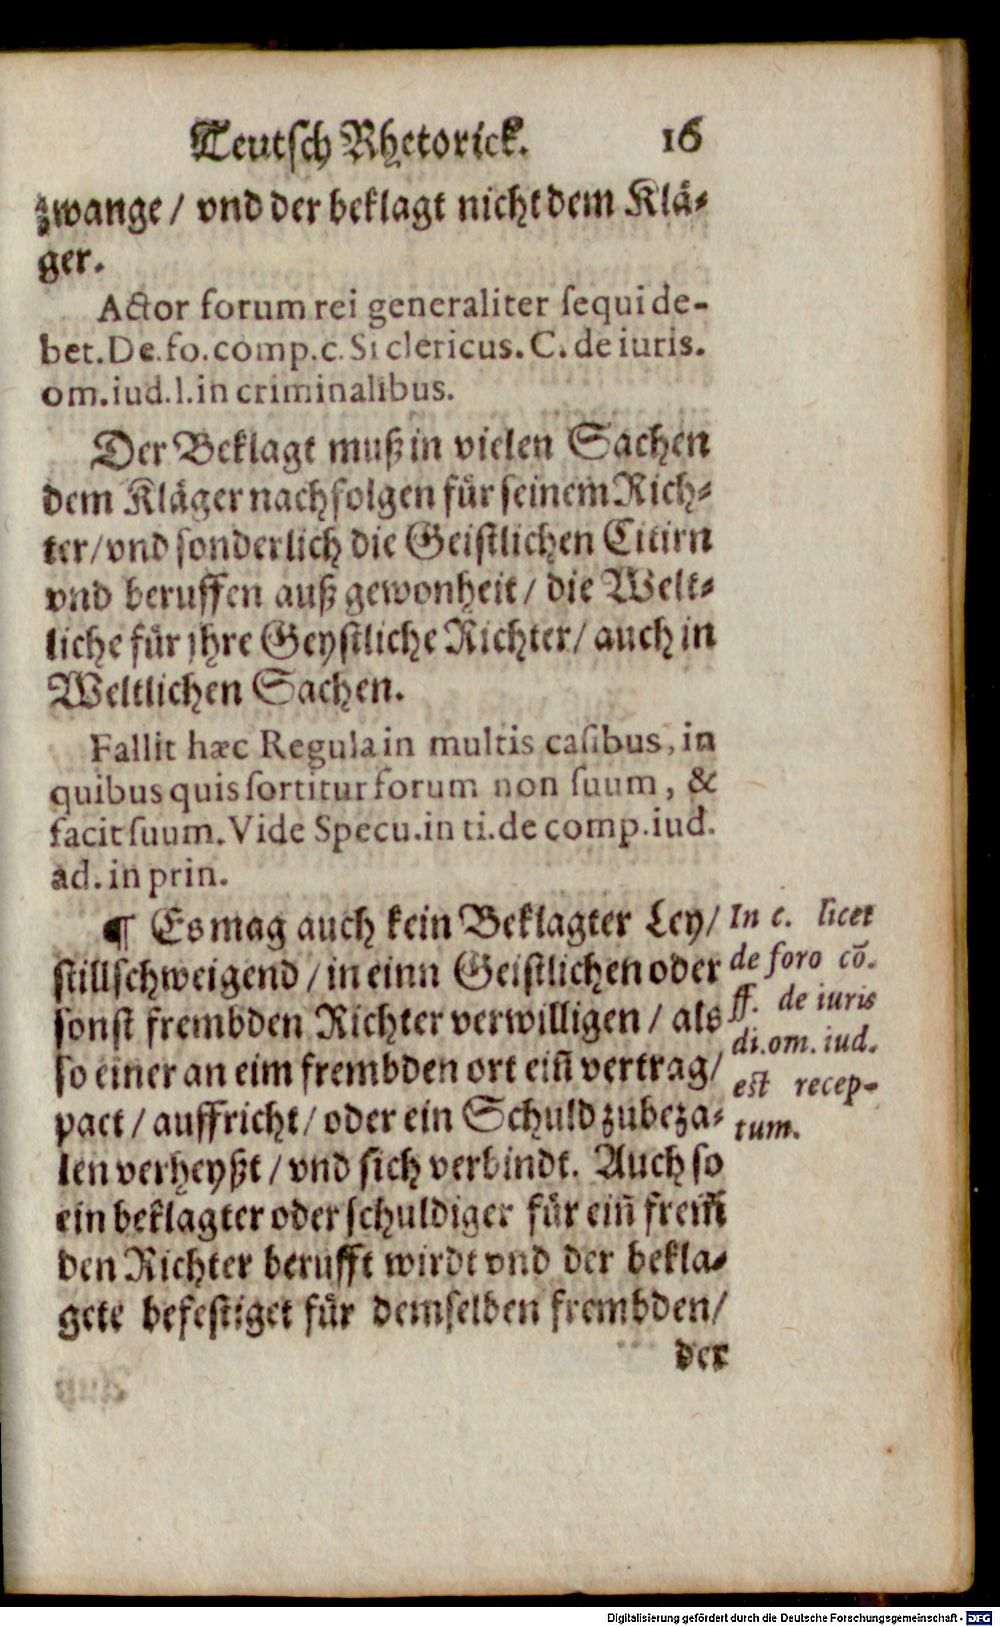 Teutsch Rhetorick. 16
zwange / vnd der beklagt nicht dem Klä⸗
ger.
Actor forum rei generaliter ſequi de-
bet. De. fo. comp. c. Si clericus. C. de iuris.
om. iud. l. in criminalibus.
Der Beklagt muß in vielen Sachen
dem Kläger nachfolgen für ſeinem Rich⸗
ter / vnd ſonderlich die Geiſtlichen Citirn
vnd beruffen auß gewonheit / die Welt⸗
liche für jhre Geyſtliche Richter / auch in
Weltlichen Sachen.
Fallit hæc Regula in multis caſibus, in
quibus quis ſortitur forum non ſuum, &
facit ſuum. Vide Specu. in ti. de comp. iud.
ad. in prin.
¶ Es mag auch kein Beklagter Ley /
ſtillſchweigend / in einn Geiſtlichen oder
ſonſt frembden Richter verwilligen / als
ſo einer an eim frembden ort ein̄ vertrag /
pact / auffricht / oder ein Schuld zubeza⸗
len verheyßt / vnd ſich verbindt. Auch ſo
ein beklagter oder ſchuldiger für ein̄ frem̄
den Richter berufft wirdt vnd der bekla⸗
gete befeſtiget für demſelben frembden /
der
In c. licet
de foro cō.
ff. de iuris
di. om. iud.
eſt recep-
tum.
Digitalisierung gefördert durch die Deutsche Forschungsgemeinschaft - DFG